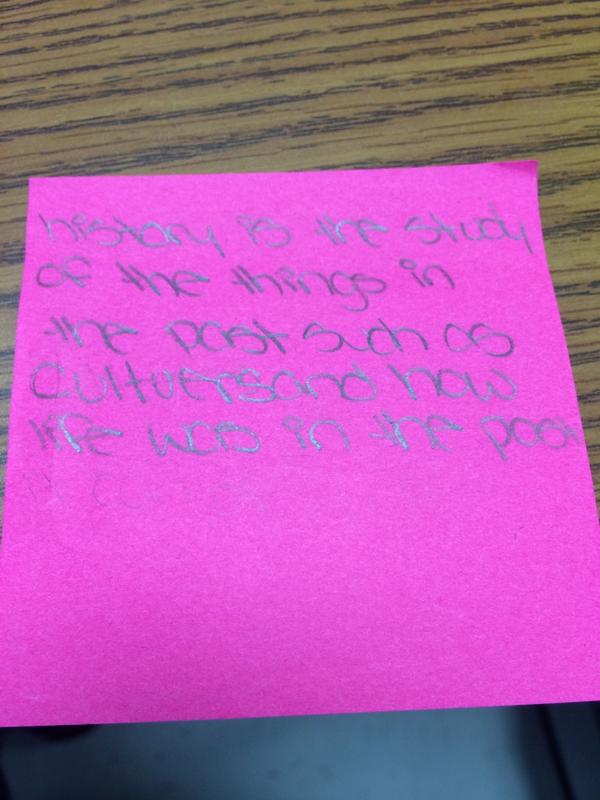 history is the study
of the things in
the past such as
Cultuersand how
life was in the past